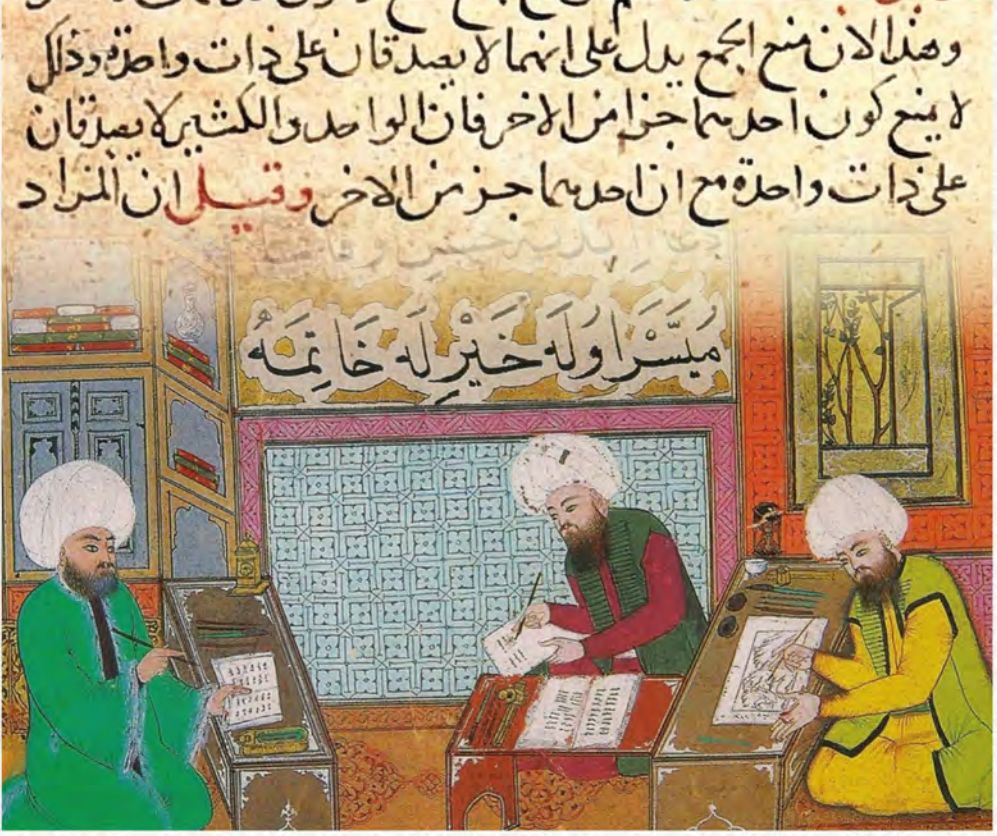 وهذا لان منع الجمع يدل على انهما لا يصدقان على ذات واحدة وذلك
لا يمنع كون احدهما جزا من الاخر فان الواحد والكثير لا يصدقان
على ذات واحدة مع ان احدهما جز من الاخر وقيل ان المراد
مُيَسَّر اوله خَيْرِلَه خَاتِمَهُ